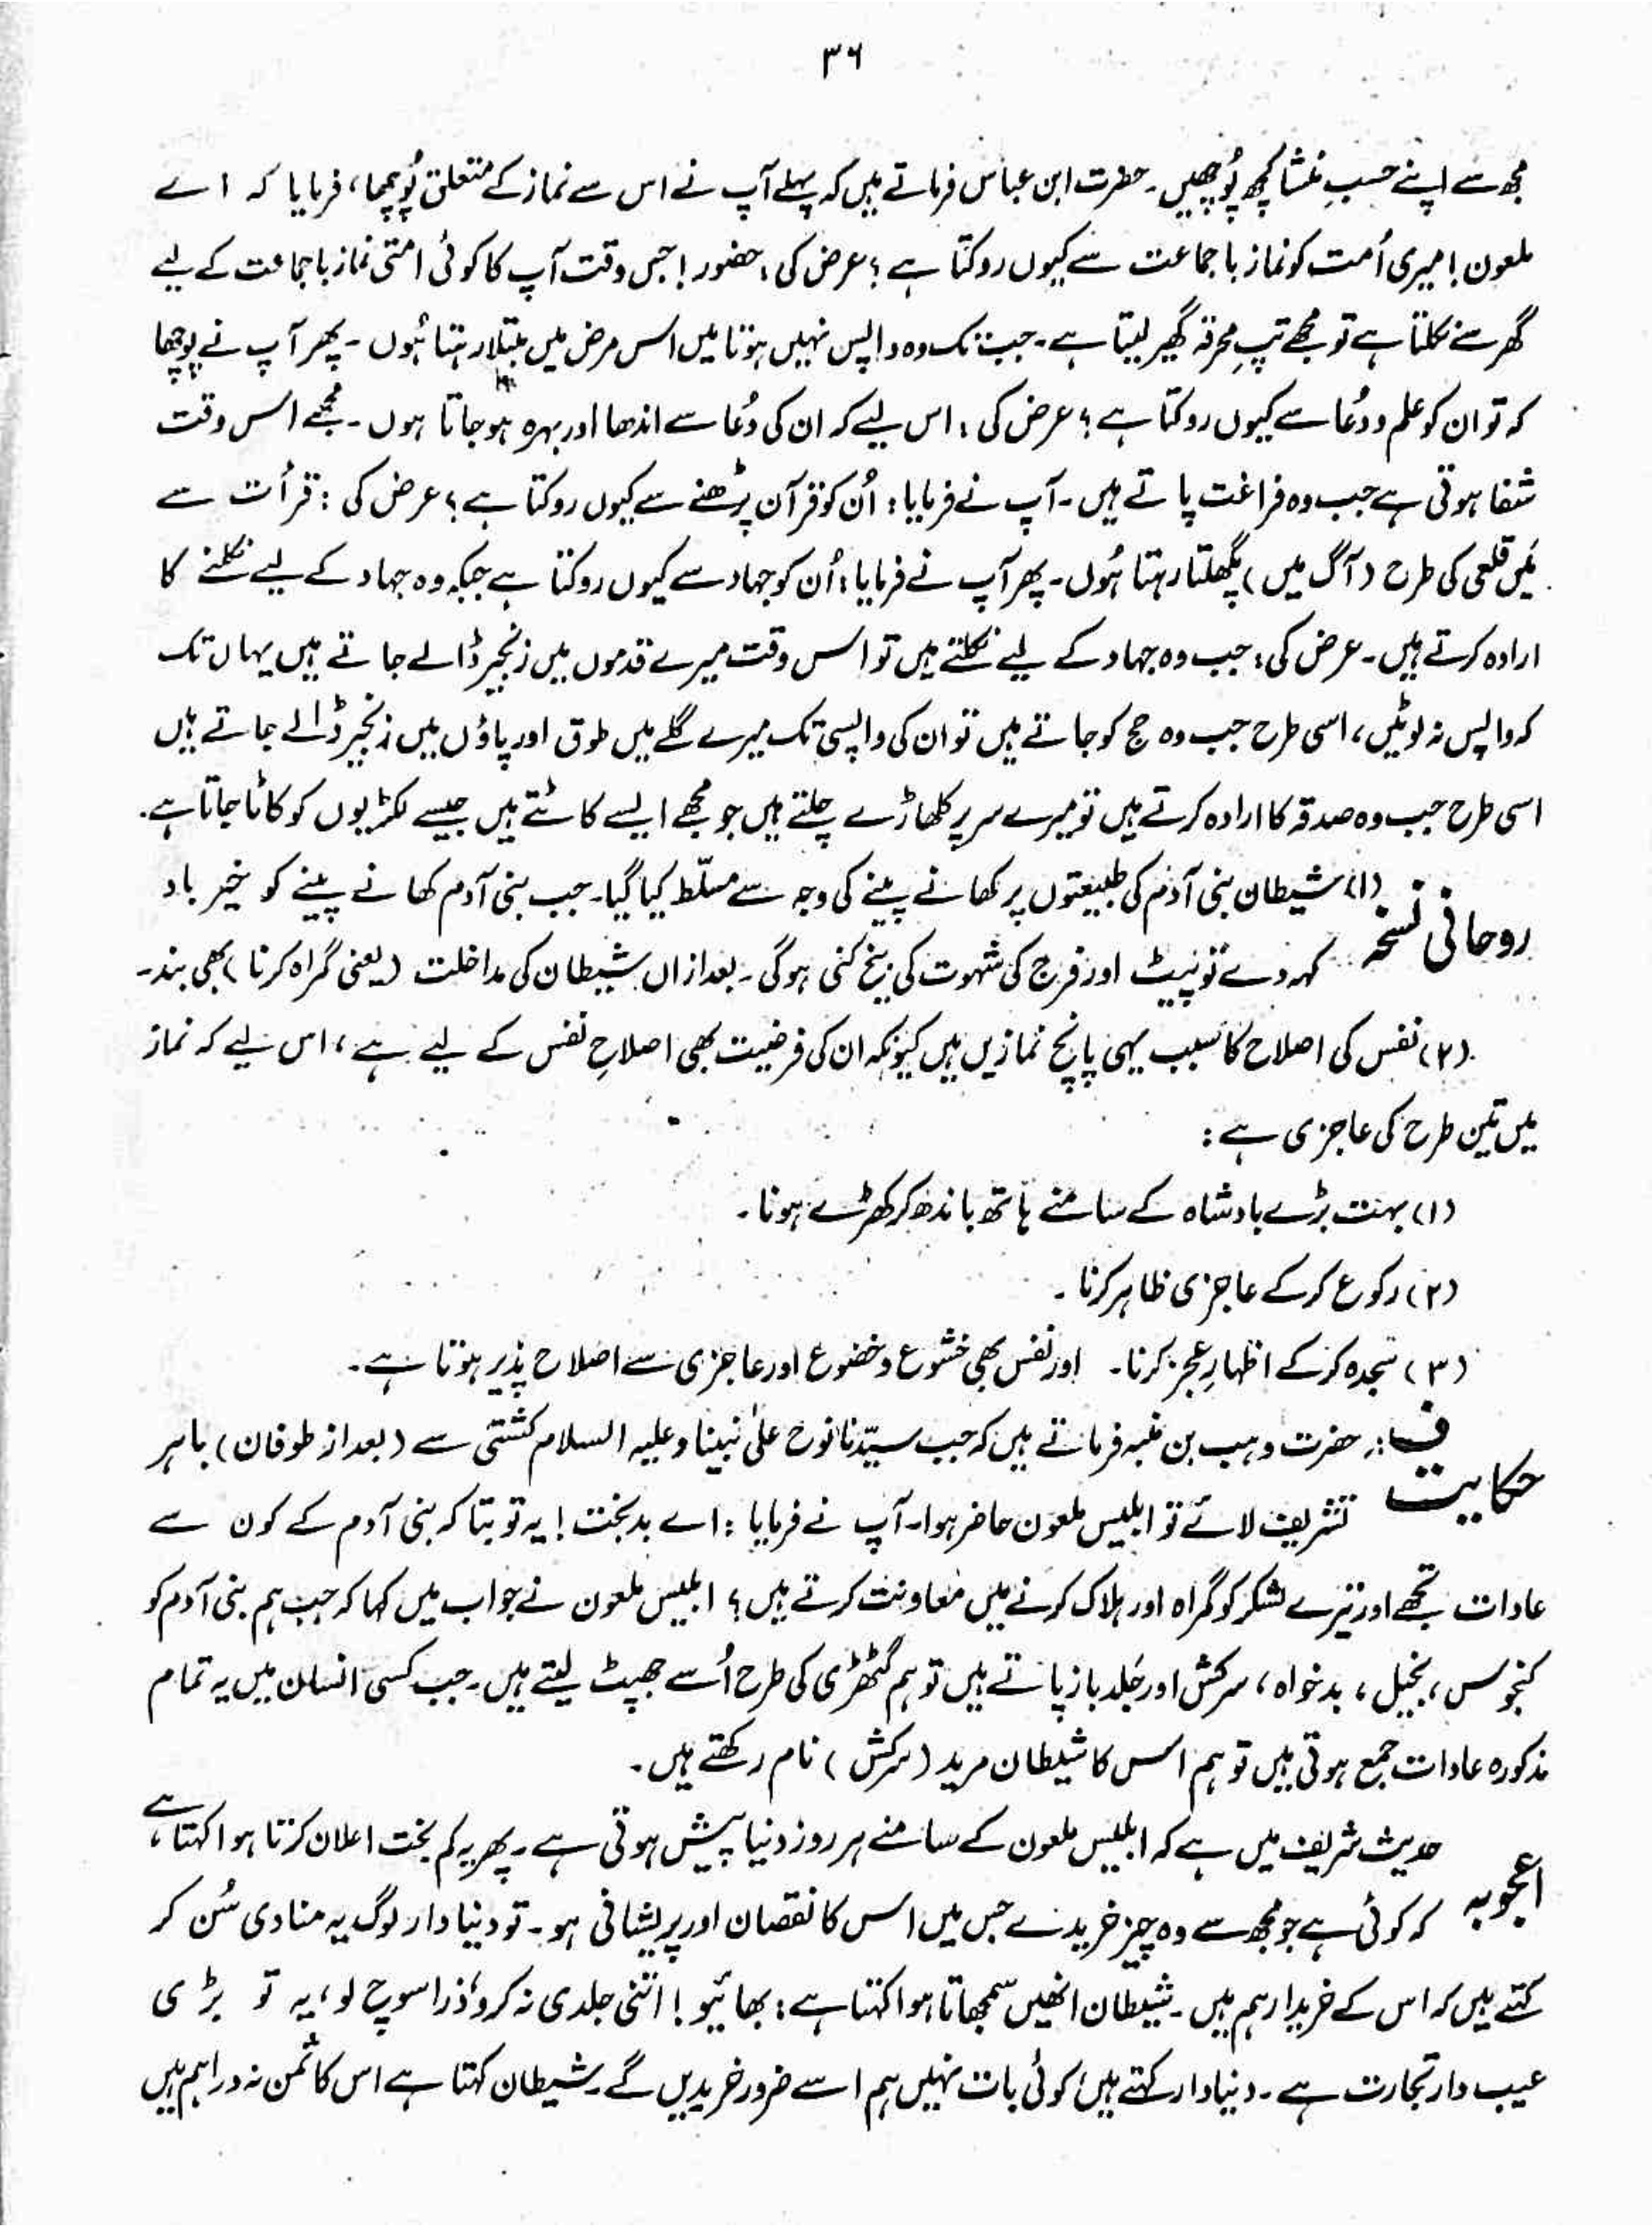 ۳۶
مجھ سے اپنے حسبِ منشا کچھ پُوچھیں۔ حضرت ابن عباس فرماتے ہیں کہ پہلے آپ نے اس سے نماز کے متعلق پُوچھا، فرمایا کہ اے
ملعون! میری اُمت کو نماز با جماعت سے کیوں روکتا ہے؟ عرض کی: حضور! جس وقت آپ کا کوئی امتی نماز با جماعت کے لیے
گھر سے نکلتا ہے تو مجھے تپِ محرقہ گھیر لیتا ہے۔ جب تک وہ واپس نہیں ہوتا میں اس مرض میں مبتلا رہتا ہُوں۔ پھر آپ نے پوچھا
کہ تو ان کو علم و دُعا سے کیوں روکتا ہے؟ عرض کی: اس لیے کہ ان کی دُعا سے اندھا اور بہرہ ہو جاتا ہوں۔ مجھے اس وقت
شفا ہوتی ہے جب وہ فراغت پاتے ہیں۔ آپ نے فرمایا: اُن کو قرآن پڑھنے سے کیوں روکتا ہے؟ عرض کی: قرأت سے
مَیں قلعی کی طرح (آگ میں) پگھلتا رہتا ہُوں۔ پھر آپ نے فرمایا: اُن کو جہاد سے کیوں روکتا ہے جبکہ وہ جہاد کے لیے نکلنے کا
ارادہ کرتے ہیں۔ عرض کی: جب وہ جہاد کے لیے نکلتے ہیں تو اس وقت میرے قدموں میں زنجیر ڈالے جاتے ہیں یہاں تک
کہ واپس نہ لوٹیں، اسی طرح جب وہ حج کو جاتے ہیں تو ان کی واپسی تک میرے گلے میں طوق اور پاؤں میں زنجیر ڈالے جاتے ہیں
اسی طرح جب وہ صدقہ کا ارادہ کرتے ہیں تو میرے سر پر کلھاڑے چلتے ہیں جو مجھے ایسے کاٹتے ہیں جیسے لکڑیوں کو کاٹا جاتا ہے۔
روحانی نسخہ (۱) شیطان بنی آدم کی طبیعتوں پر کھانے پینے کی وجہ سے مسلّط کیا گیا۔ جب بنی آدم کھانے پینے کو خیر باد
کہہ دے تو پیٹ اور فرج کی شہوت کی بیخ کنی ہوگی۔ بعد ازاں شیطان کی مداخلت (یعنی گمراہ کرنا) بھی بند۔
(۲) نفس کی اصلاح کا سبب یہی پانچ نمازیں ہیں کیونکہ ان کی فرضیت بھی اصلاحِ نفس کے لیے ہے، اس لیے کہ نماز
میں تین طرح کی عاجزی ہے:
(۱) بہت بڑے بادشاہ کے سامنے ہاتھ باندھ کر کھڑے ہونا۔
(۲) رکوع کر کے عاجزی ظاہر کرنا۔
(۳) سجدہ کر کے اظہارِ عجز کرنا۔ اور نفس بھی خشوع و خضوع اور عاجزی سے اصلاح پذیر ہوتا ہے۔
حکایت ف: حضرت وہب بن منبہ فرماتے ہیں کہ جب سیّدنا نوح علیٰ نبینا و علیہ السلام کشتی سے (بعد از طوفان) باہر
تشریف لائے تو ابلیس ملعون حاضر ہوا۔ آپ نے فرمایا: اے بد بخت! یہ تو بتا کہ بنی آدم کے کون سے
عادات تجھے اور تیرے لشکر کو گمراہ اور ہلاک کرنے میں معاونت کرتے ہیں؟ ابلیس ملعون نے جواب میں کہا کہ جب ہم بنی آدم کو
کنجوس، بخیل، بدخواہ، سرکش اور جَلد باز پاتے ہیں تو ہم گٹھڑی کی طرح اُسے جھپٹ لیتے ہیں۔ جب کسی انسان میں یہ تمام
مذکورہ عادات جمع ہوتی ہیں تو ہم اس کا شیطان مرید (سرکش) نام رکھتے ہیں۔
اعجوبہ حدیث شریف میں ہے کہ ابلیس ملعون کے سامنے ہر روز دنیا پیش ہوتی ہے۔ پھر یہ کم بخت اعلان کرتا ہوا کہتا ہے،
کہ کوئی ہے جو مجھ سے وہ چیز خریدے جس میں اس کا نقصان اور پریشانی ہو۔ تو دنیا دار لوگ یہ منادی سُن کر
کہتے ہیں کہ اس کے خریدار ہم ہیں۔ شیطان انھیں سمجھاتا ہوا کہتا ہے: بھائیو! اتنی جلدی نہ کرو، ذرا سوچ لو، یہ تو بڑی
عیب دار تجارت ہے۔ دنیا دار کہتے ہیں: کوئی بات نہیں ہم اسے ضرور خریدیں گے۔ شیطان کہتا ہے اس کا ثمن نہ دراہم ہیں